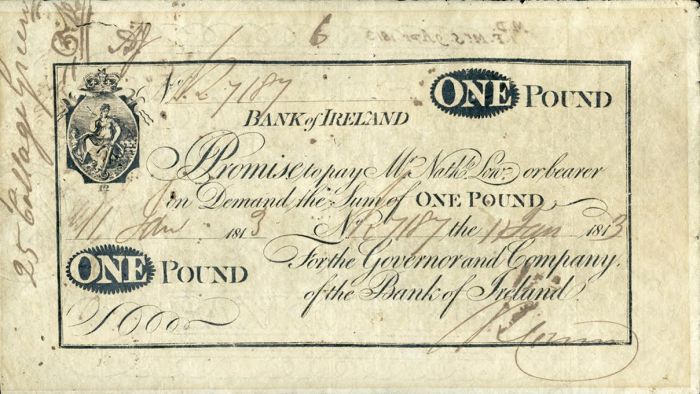 6
No. 7187
ONE POUND
BANK of IRELAND
I Promise to pay Mr. Nathl. Low, or bearer
on Demand the Sum of ONE POUND
11 Jan 1813 No. 7187 the 11 Jan 1813
ONE POUND
For the Governor and Company
of the Bank of Ireland.
12
25 College Green